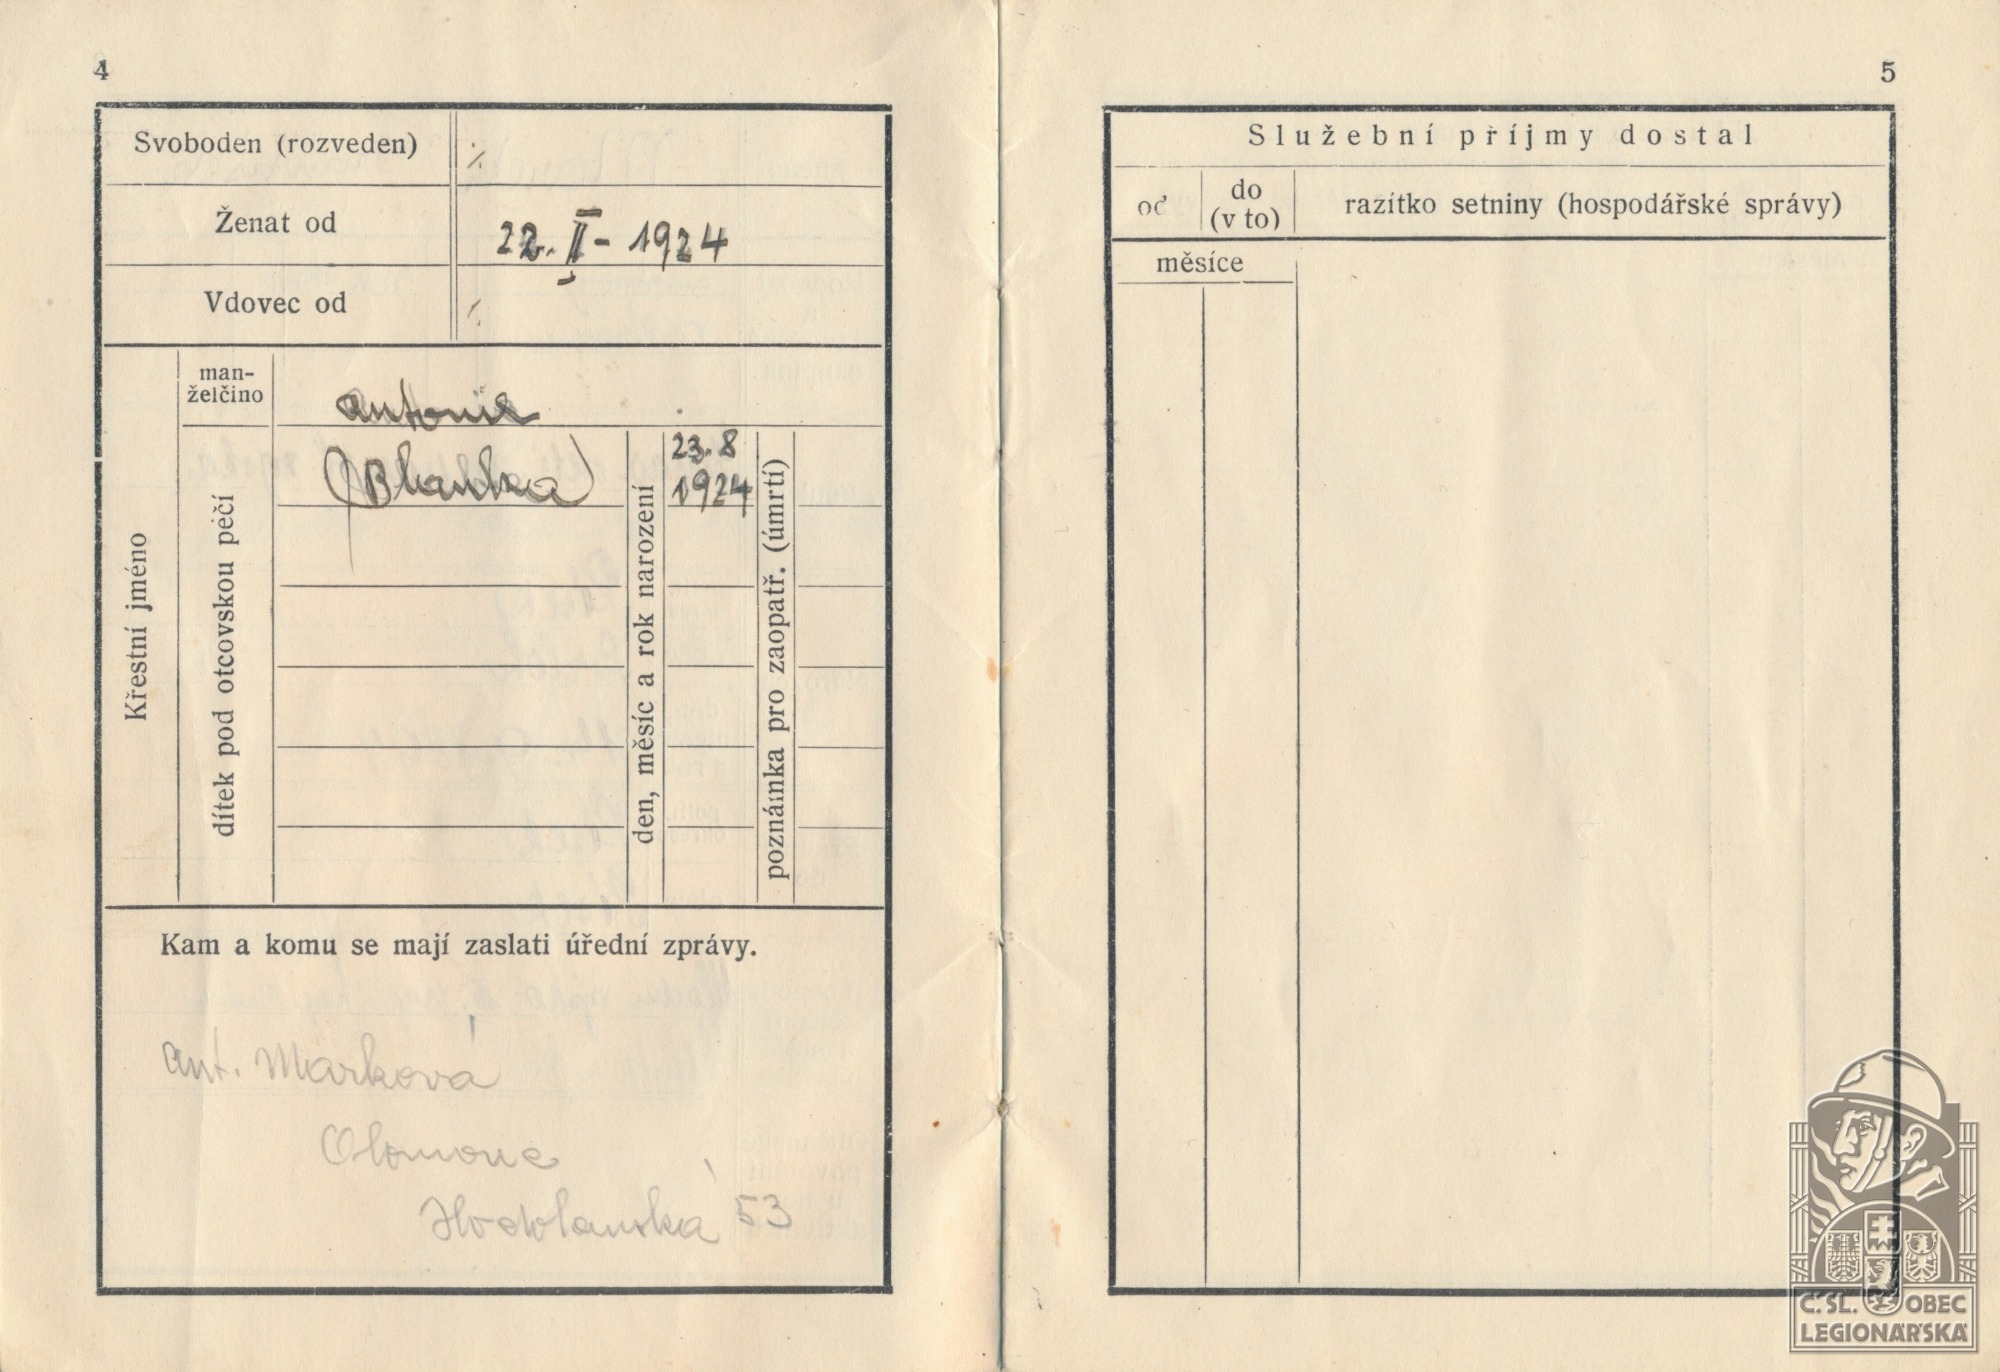 4
Svoboden (rozveden)
Ženat od
22. II - 1924
Vdovec od
man-
želčino
Antonie
Křestní jméno
dítek pod otcovskou péčí
Blanka
den, měsíc a rok narození
23. 8
1924
poznámka pro zaopatř. (úmrtí)
Kam a komu se mají zaslati úřední zprávy.
Ant. Marková
Olomouc
Hodolanská 53
5
Služební příjmy dostal
od
do
(v to)
razítko setniny (hospodářské správy)
měsíce
Č. SL. OBEC
LEGIONÁŘSKÁ